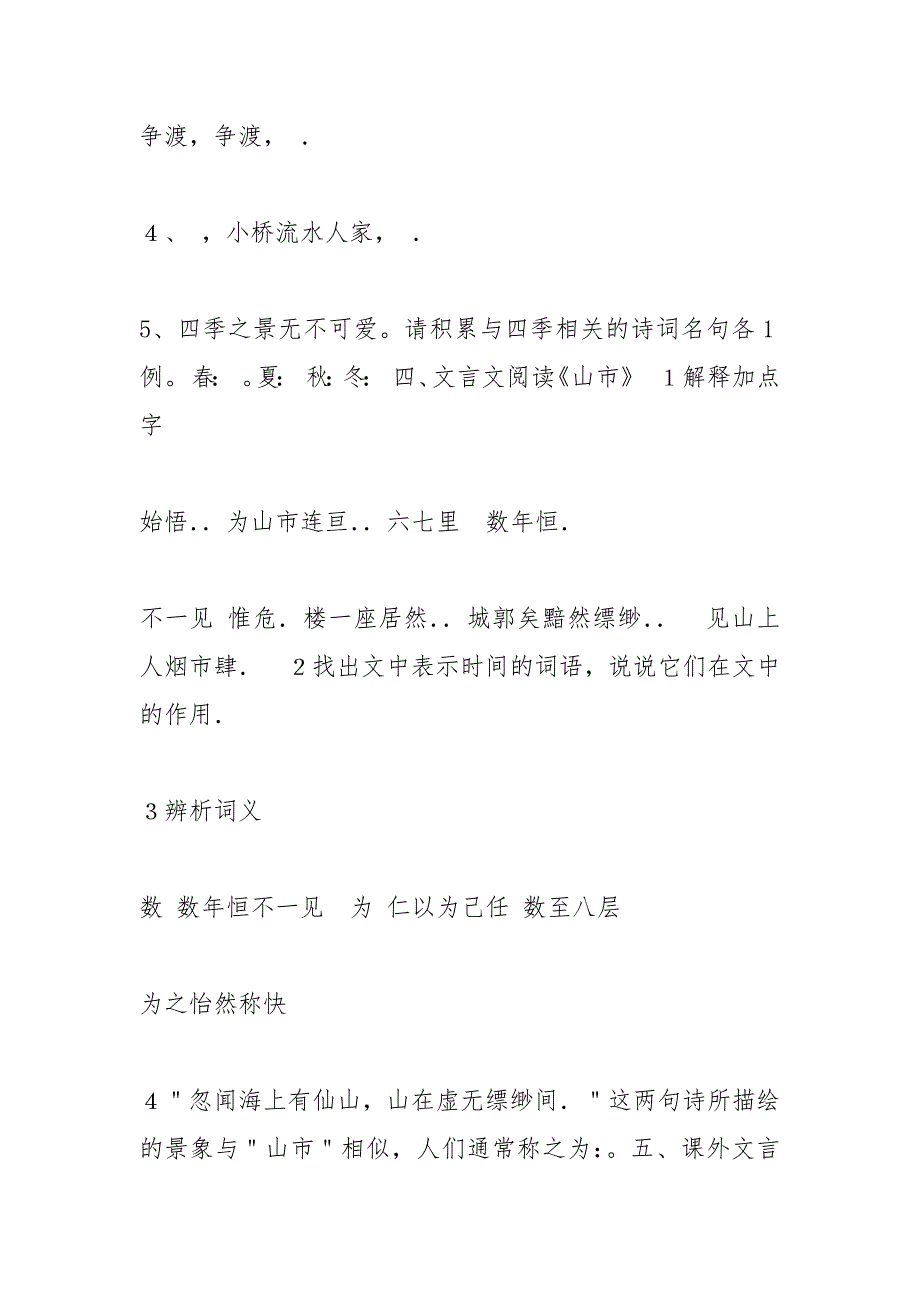 争渡，争渡， ．
4、 ，小桥流水人家， ．
5、四季之景无不可爱。请积累与四季相关的诗词名句各1
例。春： 。夏： 秋：冬： 四、文言文阅读《山市》 1解释加点
字
始悟．．为山市连亘．．六七里 数年恒．
不一见 惟危．楼一座居然．．城郭矣黯然缥缈．． 见山上
人烟市肆． 2找出文中表示时间的词语，说说它们在文中
的作用．
3辨析词义
数 数年恒不一见 为 仁以为己任 数至八层
为之怡然称快
4＂忽闻海上有仙山，山在虚无缥缈间．＂这两句诗所描绘
的景象与＂山市＂相似，人们通常称之为：。五、课外文言